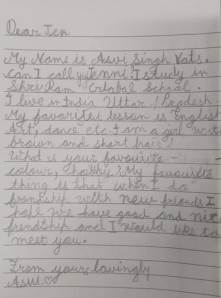 Dear Jen
My Name is Asvi Singh Vats.
Can I call you Jenni? I study in
Shree Ram Global School.
I live in India Uttar Pradesh
My favorite lesson is English
Art, dance etc. I am a girl with
brown and short hair!
What is your favourite
colour, hobby? My favourite
thing is that when I do
friendship with new friends I
hope we have good and nice
friendship and I would like to
meet you.
From your lovingly
Asvi